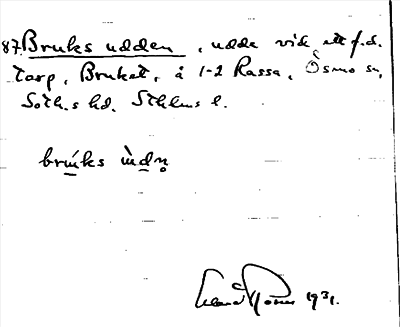 87. Bruksudden, udde vid ett f.d.
torp, Bruket, å 1-2 Rassa, Ösmo sn,
Soth.s hd. Sthlms l.
brúks ùdn̥
1931.